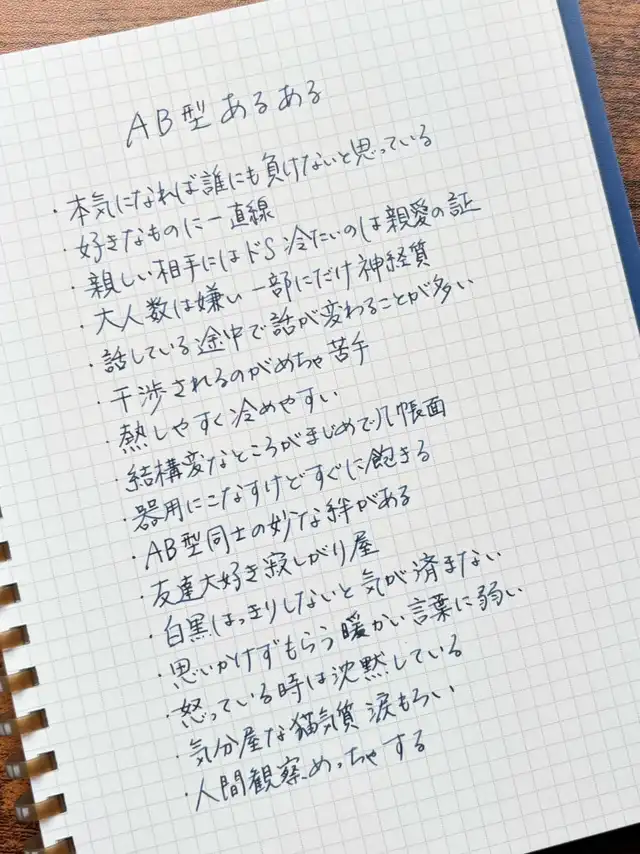 AB型あるある
・本気になれば誰にも負けないと思っている
・好きなものに一直線
・親しい相手にはドS 冷たいのは親愛の証
・大人数は嫌い 一部にだけ神経質
・話している途中で話が変わることが多い
・干渉されるのがめちゃ苦手
・熱しやすく冷めやすい
・結構変なところがまじめで几帳面
・器用にこなすけどすぐに飽きる
・AB型同士の妙な絆がある
・友達大好き寂しがり屋
・白黒はっきりしないと気が済まない
・思いがけずもらう暖かい言葉に弱い
・怒っている時は沈黙している
・気分屋な猫気質 涙もろい
・人間観察めっちゃする